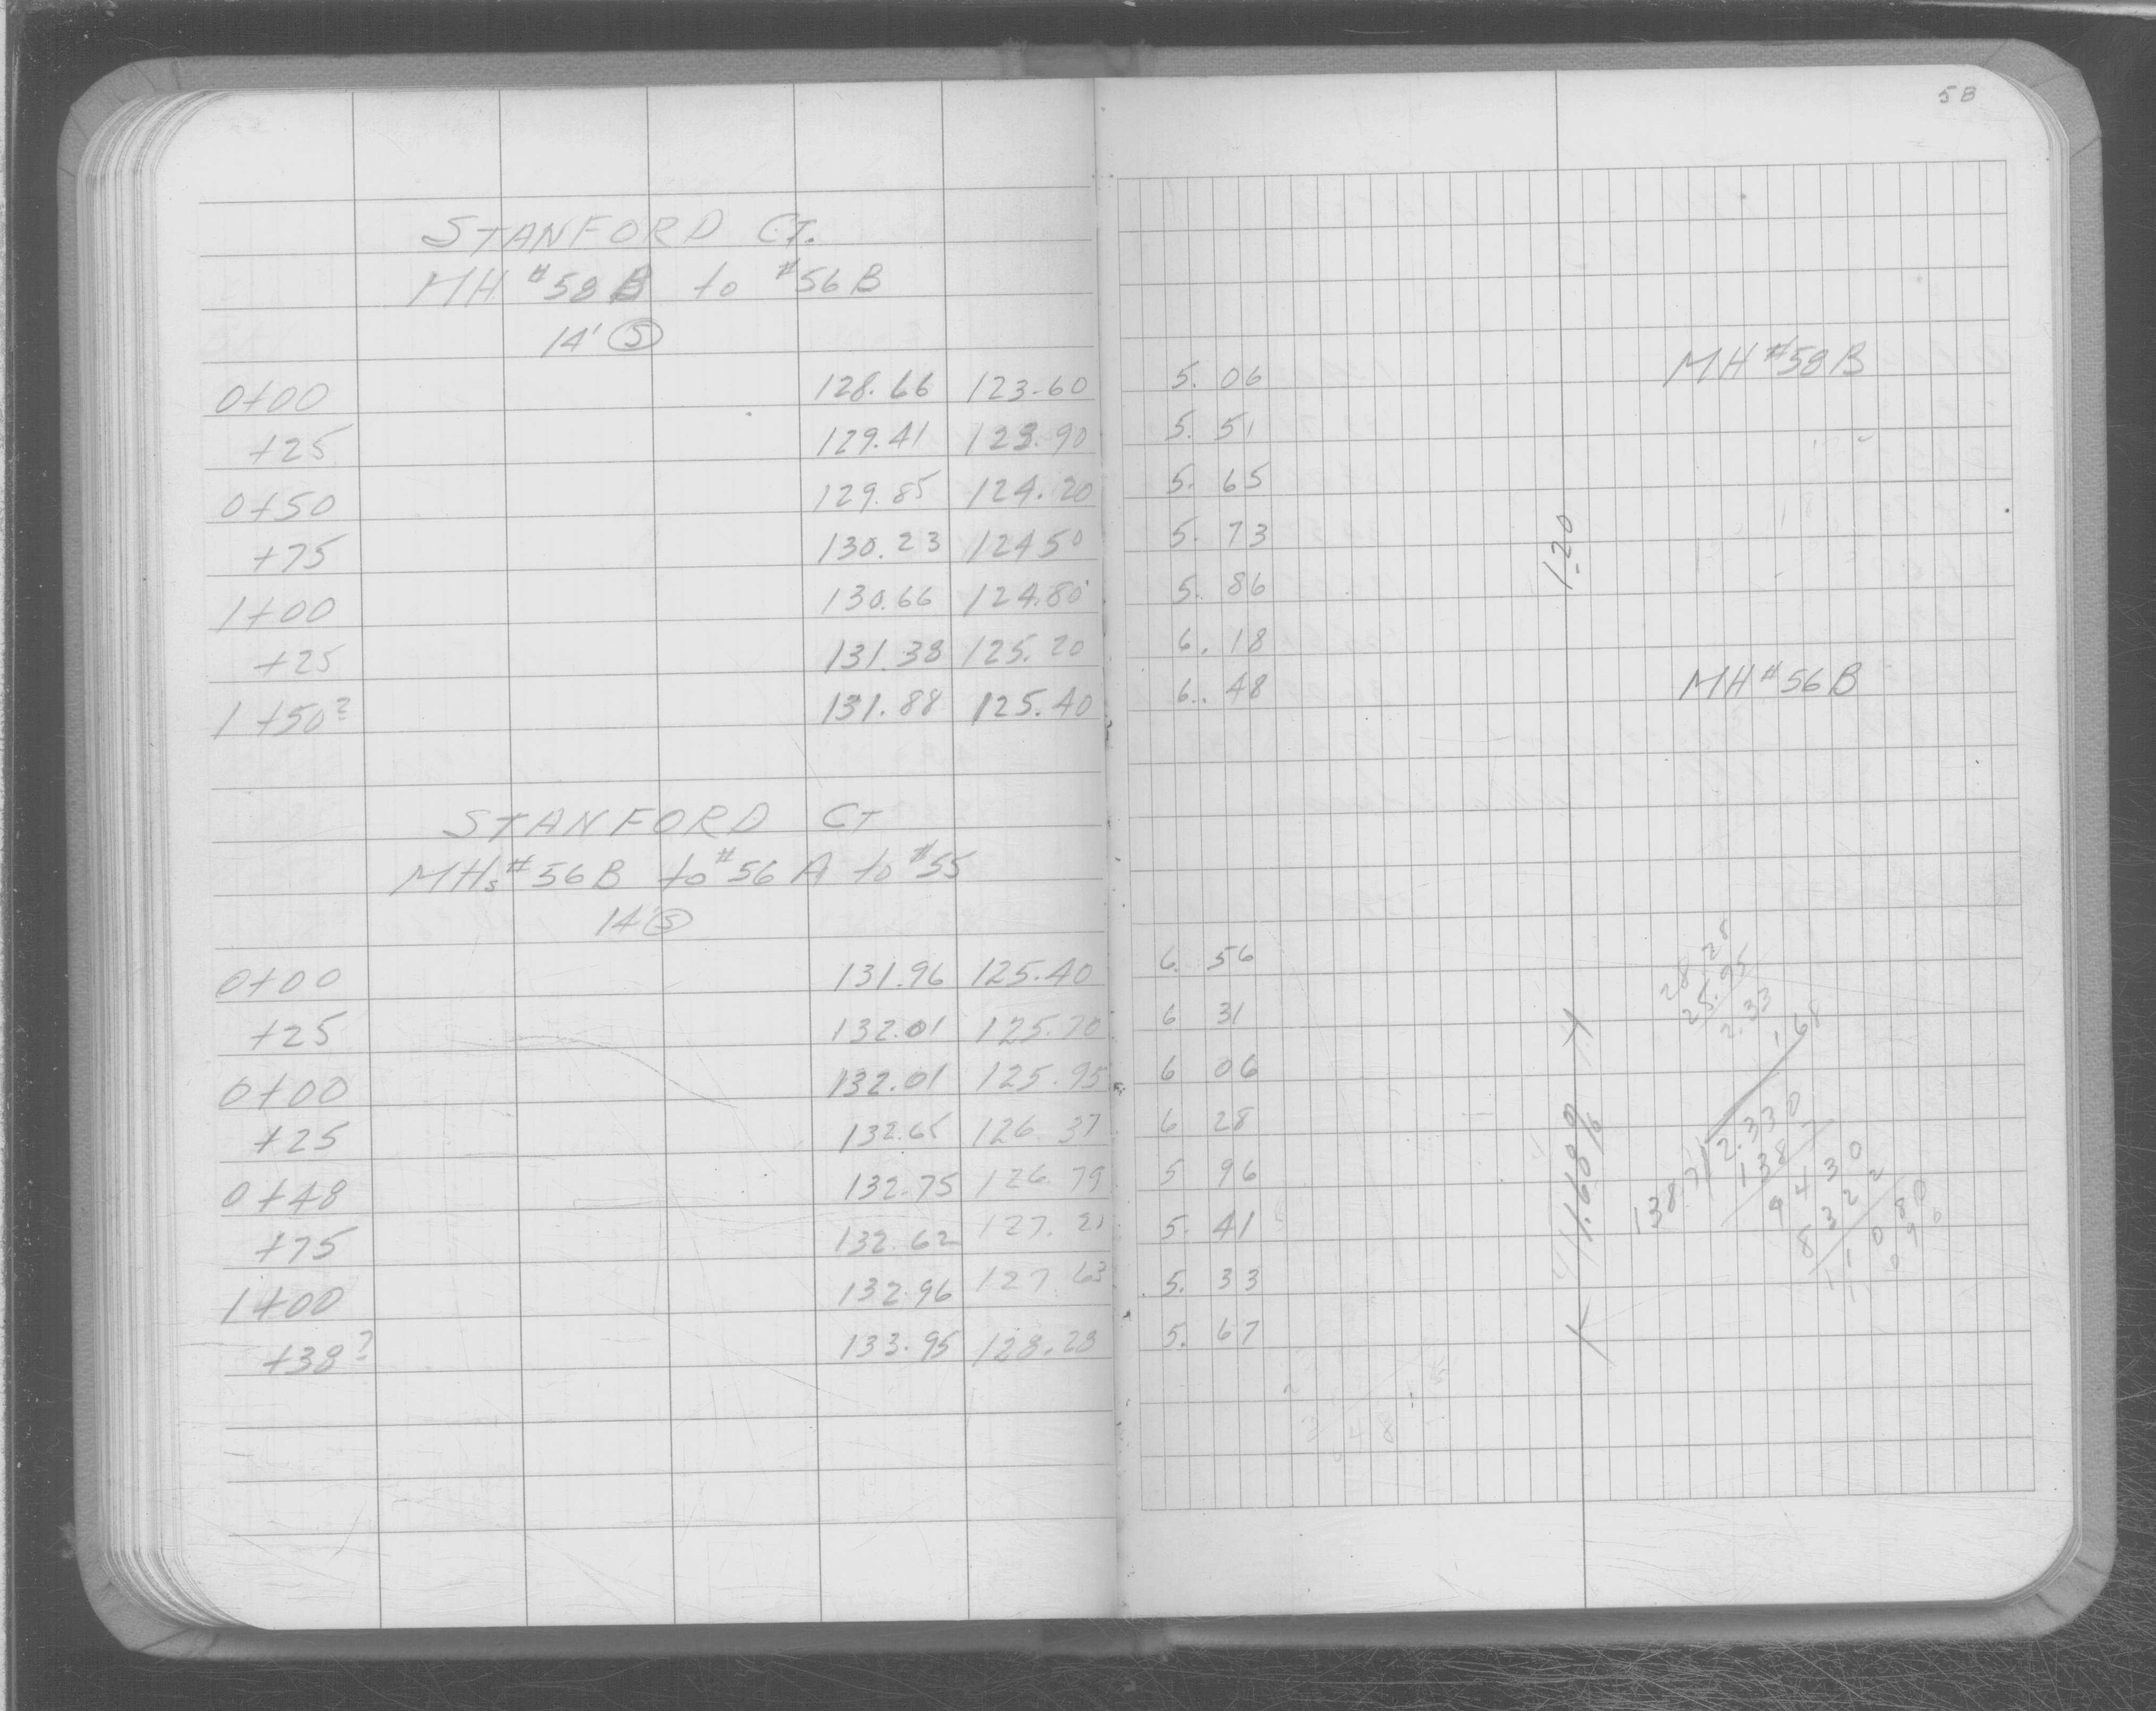 58
STANFORD CT.
MH #58 B to #56 B
14' Ⓢ
0+00 128.66 123.60 5. 06 MH #58B
+25 129.41 123.90 5. 51
0+50 129.85 124.20 5. 65
+75 130.23 124 50 5. 73
1.20
1+00 130.66 124.80 5. 86
+25 131.38 125.20 6. 18
1+50? 131.88 125.40 6. 48 MH #56B
STANFORD CT
MHs #56B to #56 A to #55
14' Ⓢ
0+00 131.96 125.40 6. 56
+25 132.01 125.70 6 31
0+00 132.01 125.95 6 06
+25 132.65 126.37 6 28
0+48 132.75 126.79 5 96
+75 132.62 127.21 5. 41
1+00 132.96 127.63 5. 33
+38? 133.95 128.28 5. 67
1.68%
28 28
25.95
2.33
1 68
138.7 2.330
138 7
9 4 3 0
8 3 2 2
1 1 0 80
1 1 0 9 6